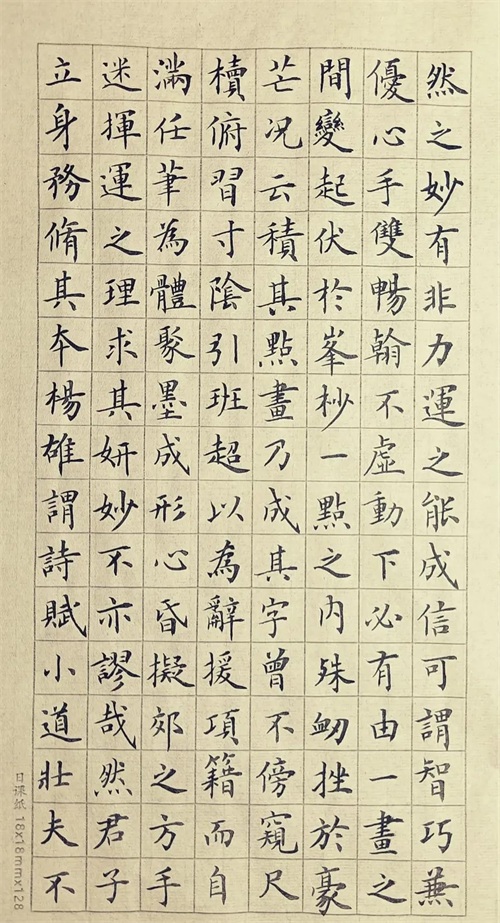 然之妙有非力運之能成信可謂智巧兼
優心手雙暢翰不虛動下必有由一畫之
間變起伏於峯杪一點之内殊衂挫於豪
芒况云積其點畫乃成其字曾不傍窺尺
櫝俯習寸陰引班超以為辭援項籍而自
滿任筆為體聚墨成形心昏擬郊之方手
迷揮運之理求其妍妙不亦謬哉然君子
立身務脩其本楊雄謂詩賦小道壯夫不
日课纸 18x18mmx128